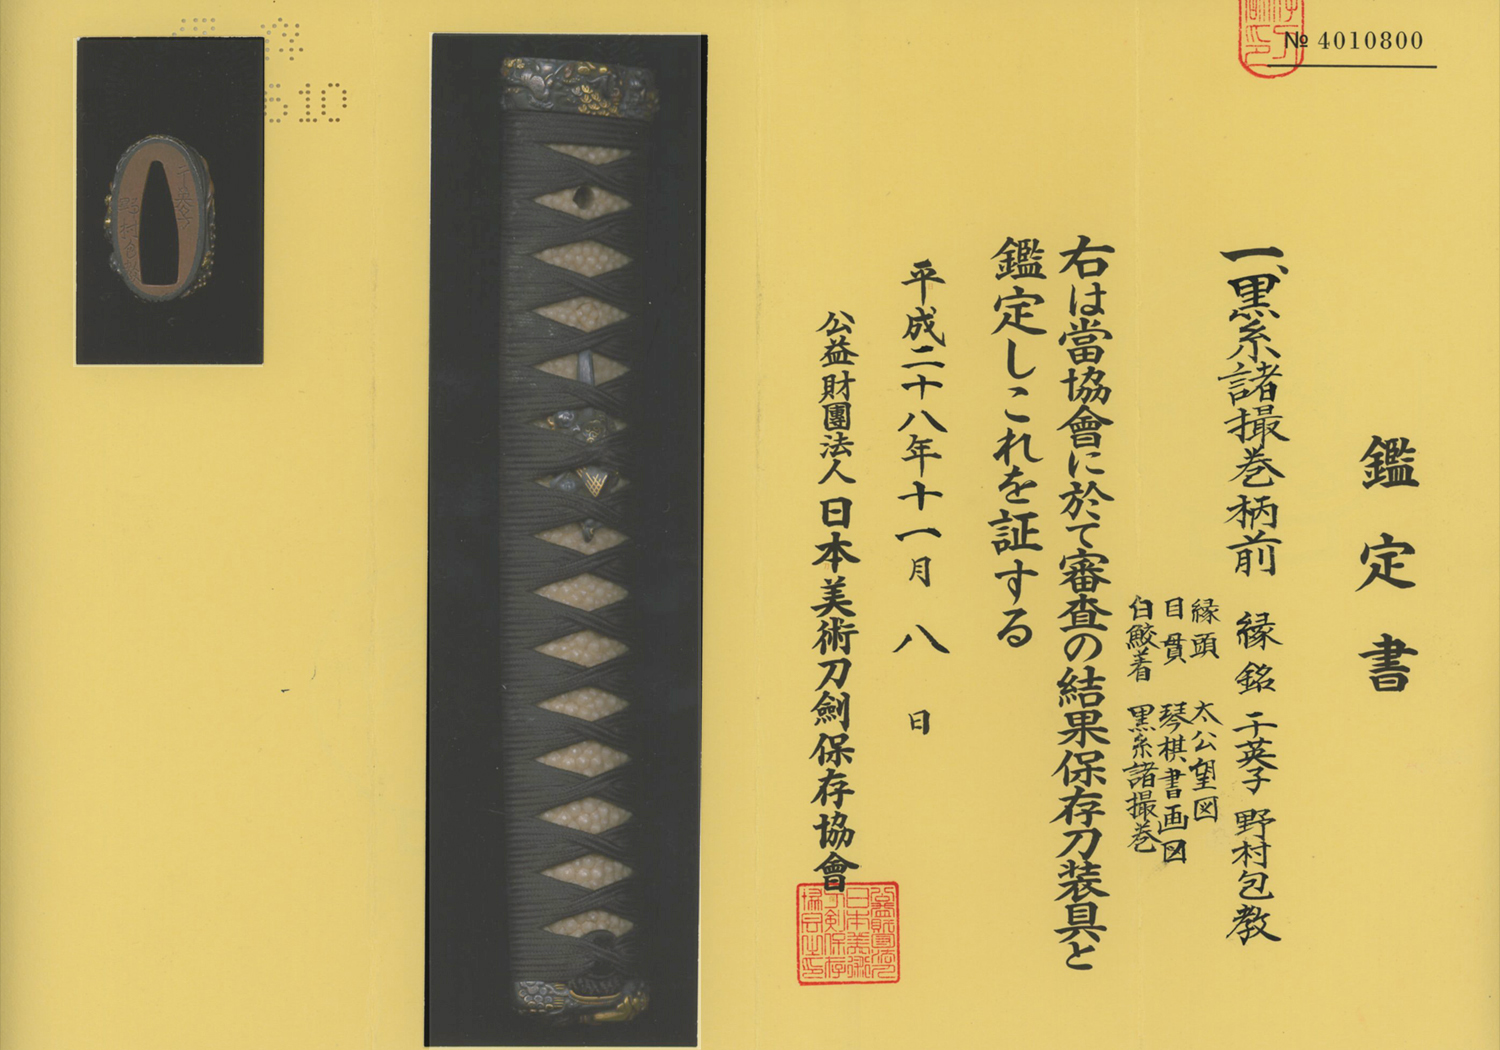 № 4010800
鑑定書
一、黒糸諸撮巻柄前 縁銘 干英子 野村包教
縁頭 太公望図
目貫 琴棋書画図
白鮫着 黒糸諸撮巻
右は當協會に於て審査の結果保存刀装具と
鑑定しこれを証する
平成二十八年十一月八日
公益財團法人日本美術刀劍保存協會
610